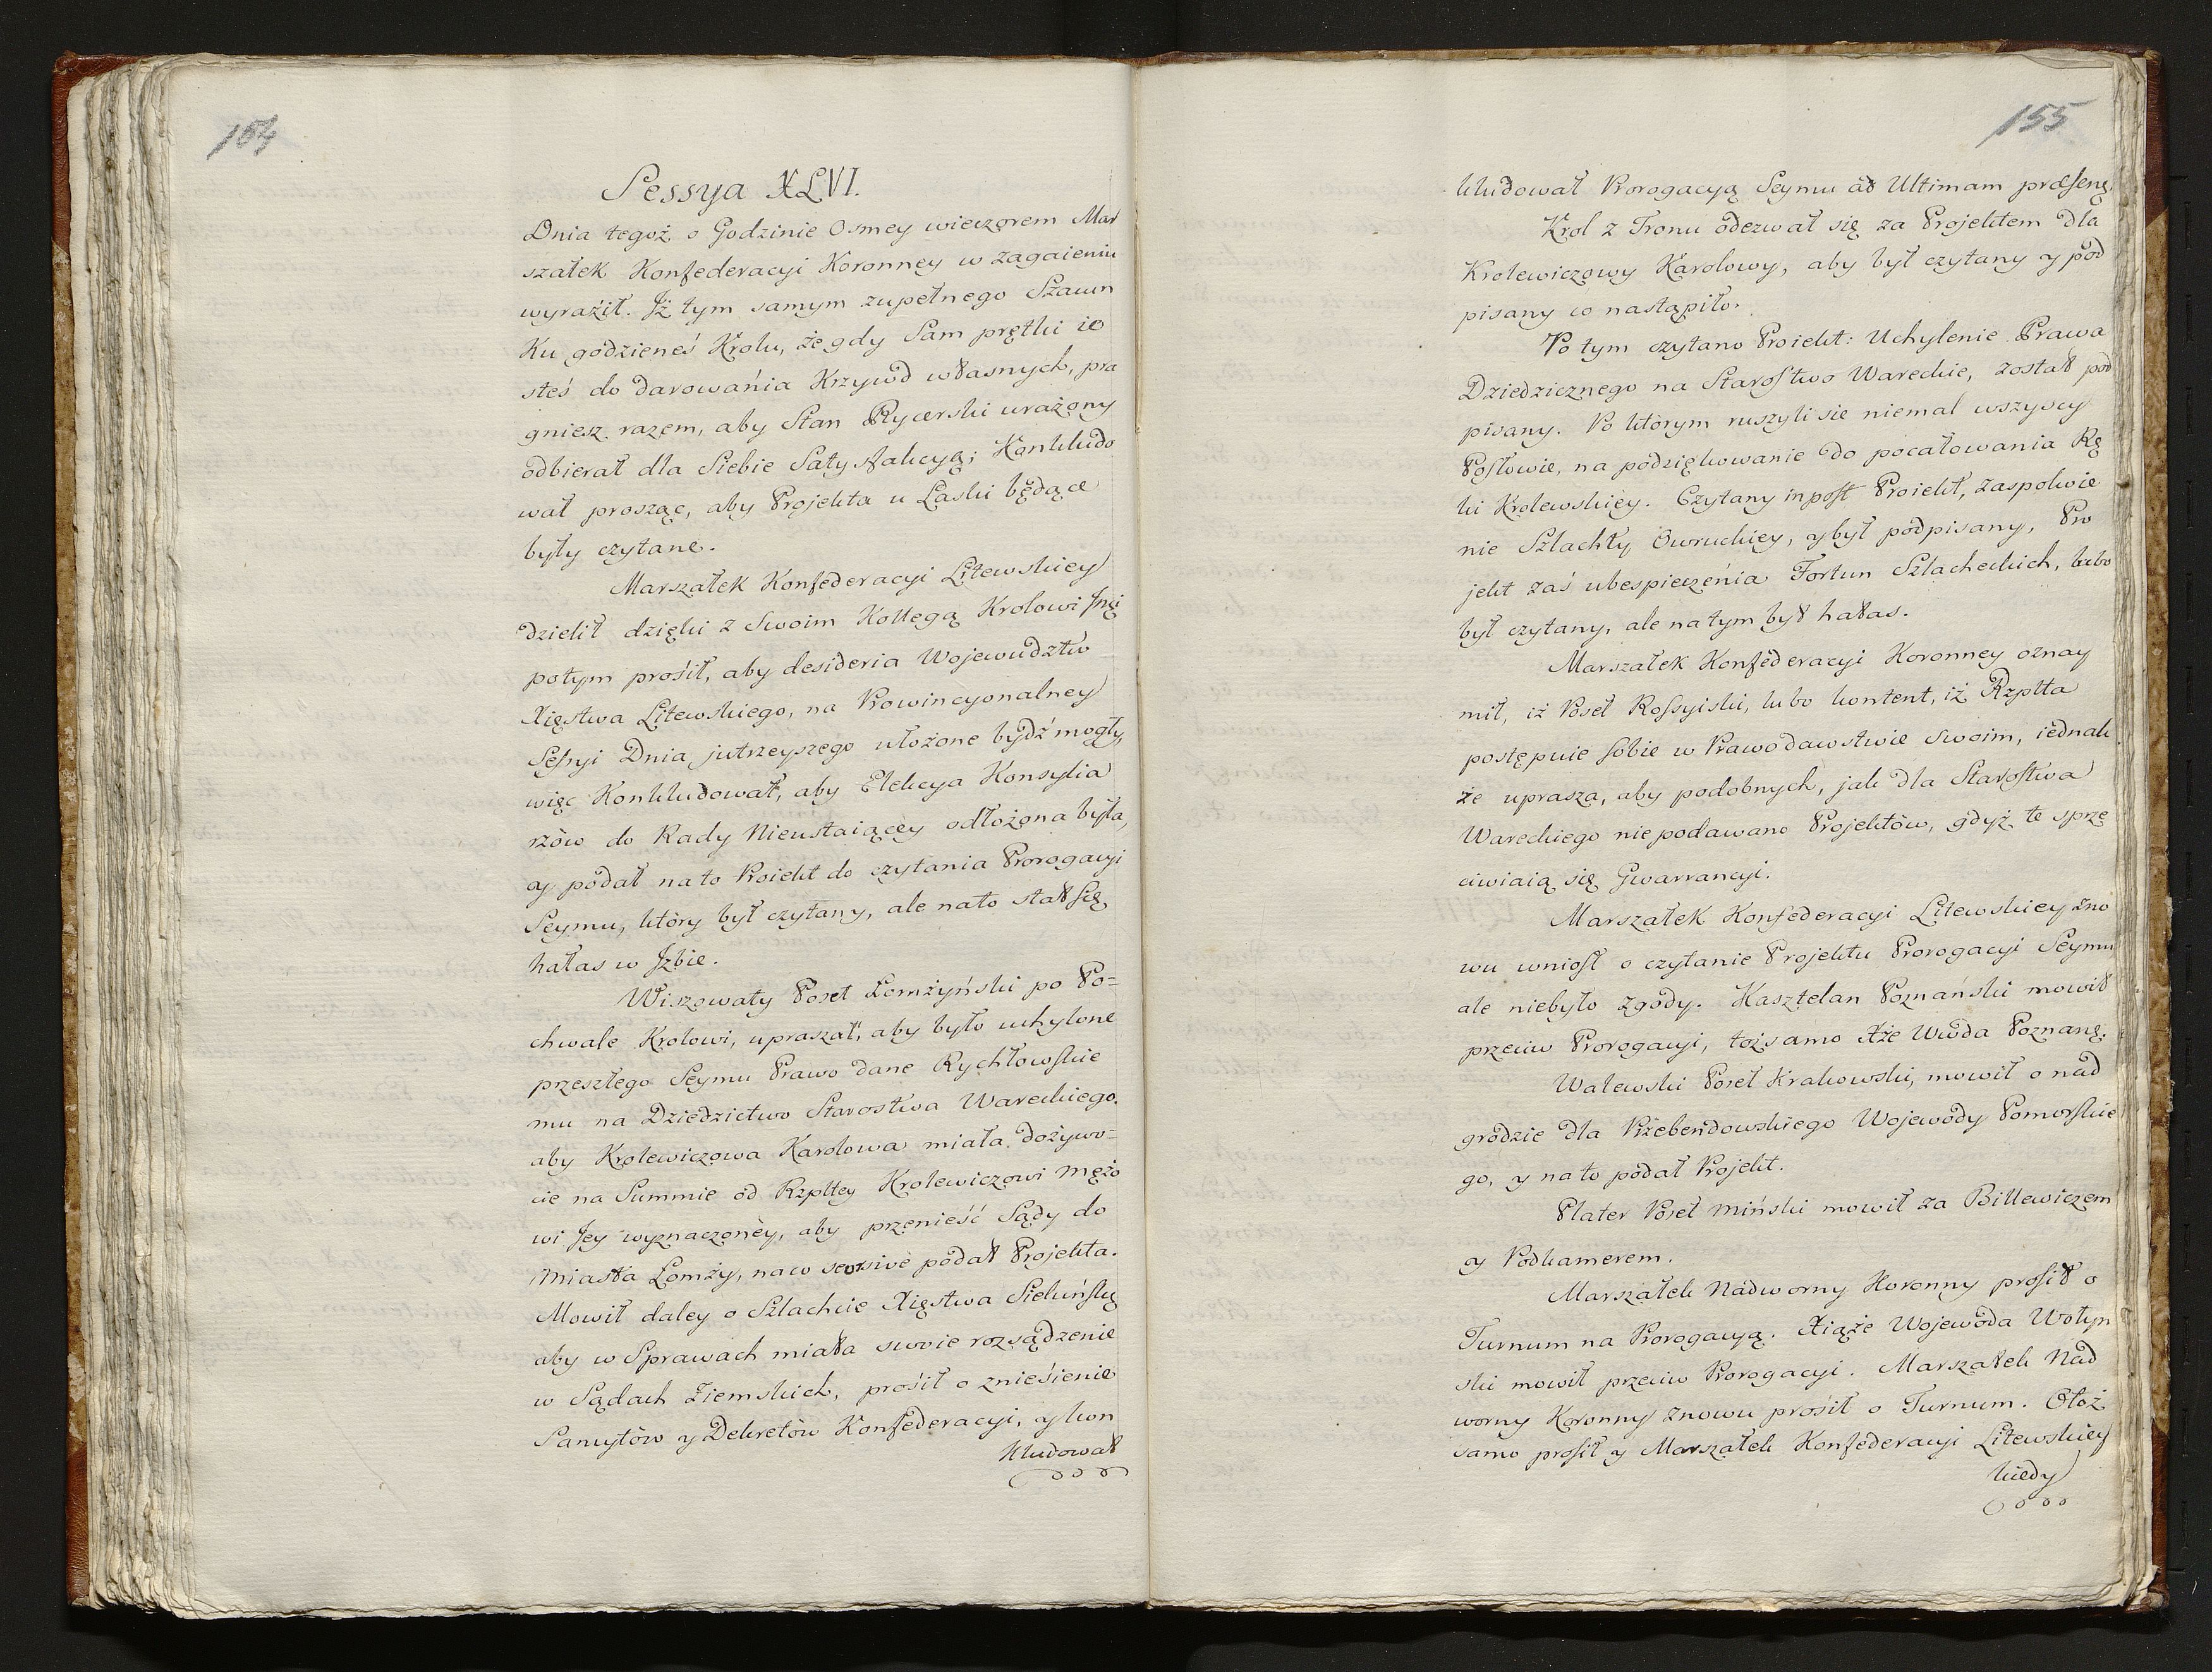 154
Sessya XLVI.
Dnia tegoż o Godzinie Osmey wieczorem Mar
szałek Konfederacyi Koronney w zagaieniu
wyraził. Jż tym samym zupełnego Szacun
Ku godzieneś Krolu, że gdy Sam prętki ie
steś do darowańia Krzywd własnych, pra
gniesz razem, aby Stan Rycerski urażony
odbierał dla Siebie Satysfakcyą; Konkludo
wał prosząc, aby Projekta u Laski będące
były czytane.
Marszałek Konfederacyi Litewskiey
dzielił dzięki z Swoim Kollegą Krolowi
potym prośił, aby desideria Wojewudztw
Xięstwa Litewskiego, na Prowincyonalney
Sessyi Dnia jutrzeyszego ułożone bydź mogły,
więc Konkludował, aby Elekcya Konsylia
rzów do Rady Nieustaiącey odłożona była,
y podał na to Proiekt do czytania Prorogacyi
Seymu, który był czytany, ale na to stał się
hałas w Jzbie.
Wiszowaty Poseł Łomżyński po Po=
chwale Krolowi, upraszał, aby było uchylone
przeszłego Seymu Prawo dane Rychłowskie
mu na Dziedzictwo Starostwa Wareckiego.
aby Krolewiczowa Karolowa miała dożywo=
cie na Summie od Rzpltey Krolewiczowi Mężo
wi Jey wyznaczoney, aby przenieść Sądy do
Miasta Łomży, na co seorsive podał Projekta.
Mowił daley o Szlachcie Xięstwa Sieluńskę
aby w Sprawach miała swoie rozsądzenie
w Sądach Ziemskich, prośił o znieśienie
Sancytów y Dekretów Konfederacyi, y kon
kludował
155
kludował Prorogacyą Seymu ad Ultimam præsentę.
Krol z Tronu odezwał się za Projektem dla
Krolewiczowy Karolowy, aby był czytany y pod
pisany co nastąpiło.
Po tym czytano Proiekt: Uchylenie Prawa
Dziedzicznego na Starostwo Wareckie, został pod
pisany. Po którym ruszyli sie niemal wszyscy
Posłowie, na podziękowanie do pocałowania Rę
ki Krolewskiey. Czytany in post Proiekt, zaspokoie
nie Szlachty Owruckiey, y był podpisany, Pro
jekt zaś ubespieczeńia Fortun Szlacheckich, lubo
był czytany, ale na tym był hałas.
Marszałek Konfederacyi Koronney oznay
mił, iż Poseł Rossyiski, lubo kontent, iż Rzplta
postępuie sobie w Prawodawstwie swoim, iednak
że uprasza, aby podobnych, jak dla Starostwa
Wareckiego nie podawano Projektów, gdyż te sprze
ciwiaią się Gwarrancyi.
Marszałek Konfederacyi Litewskiey zno
wu wniosł o czytanie Projektu Prorogacyi Seymu,
ale niebyło zgody. Kasztelan Poznański mowił
przeciw Prorogacyi, toż samo Xże Wwda Poznanę.
Walewski Poseł Krakowski, mowił o nad
grodzie dla Przebendowskiego Wojewody Pomorskie
go, y na to podał Projekt.
Plater Poseł Miński mowił za Billewiczem
y Podkamerem.
Marszałek Nadworny Koronny prosił o
Turnum na Prorogacyą. Xiąże Wojewoda Wołyn
ski mowił przeciw Prorogacyi. Marszałek Nad
worny Koronny znowu prosił o Turnum. Otoż
samo prosił y Marszałek Konfederacyi Litewskiey
kiedy